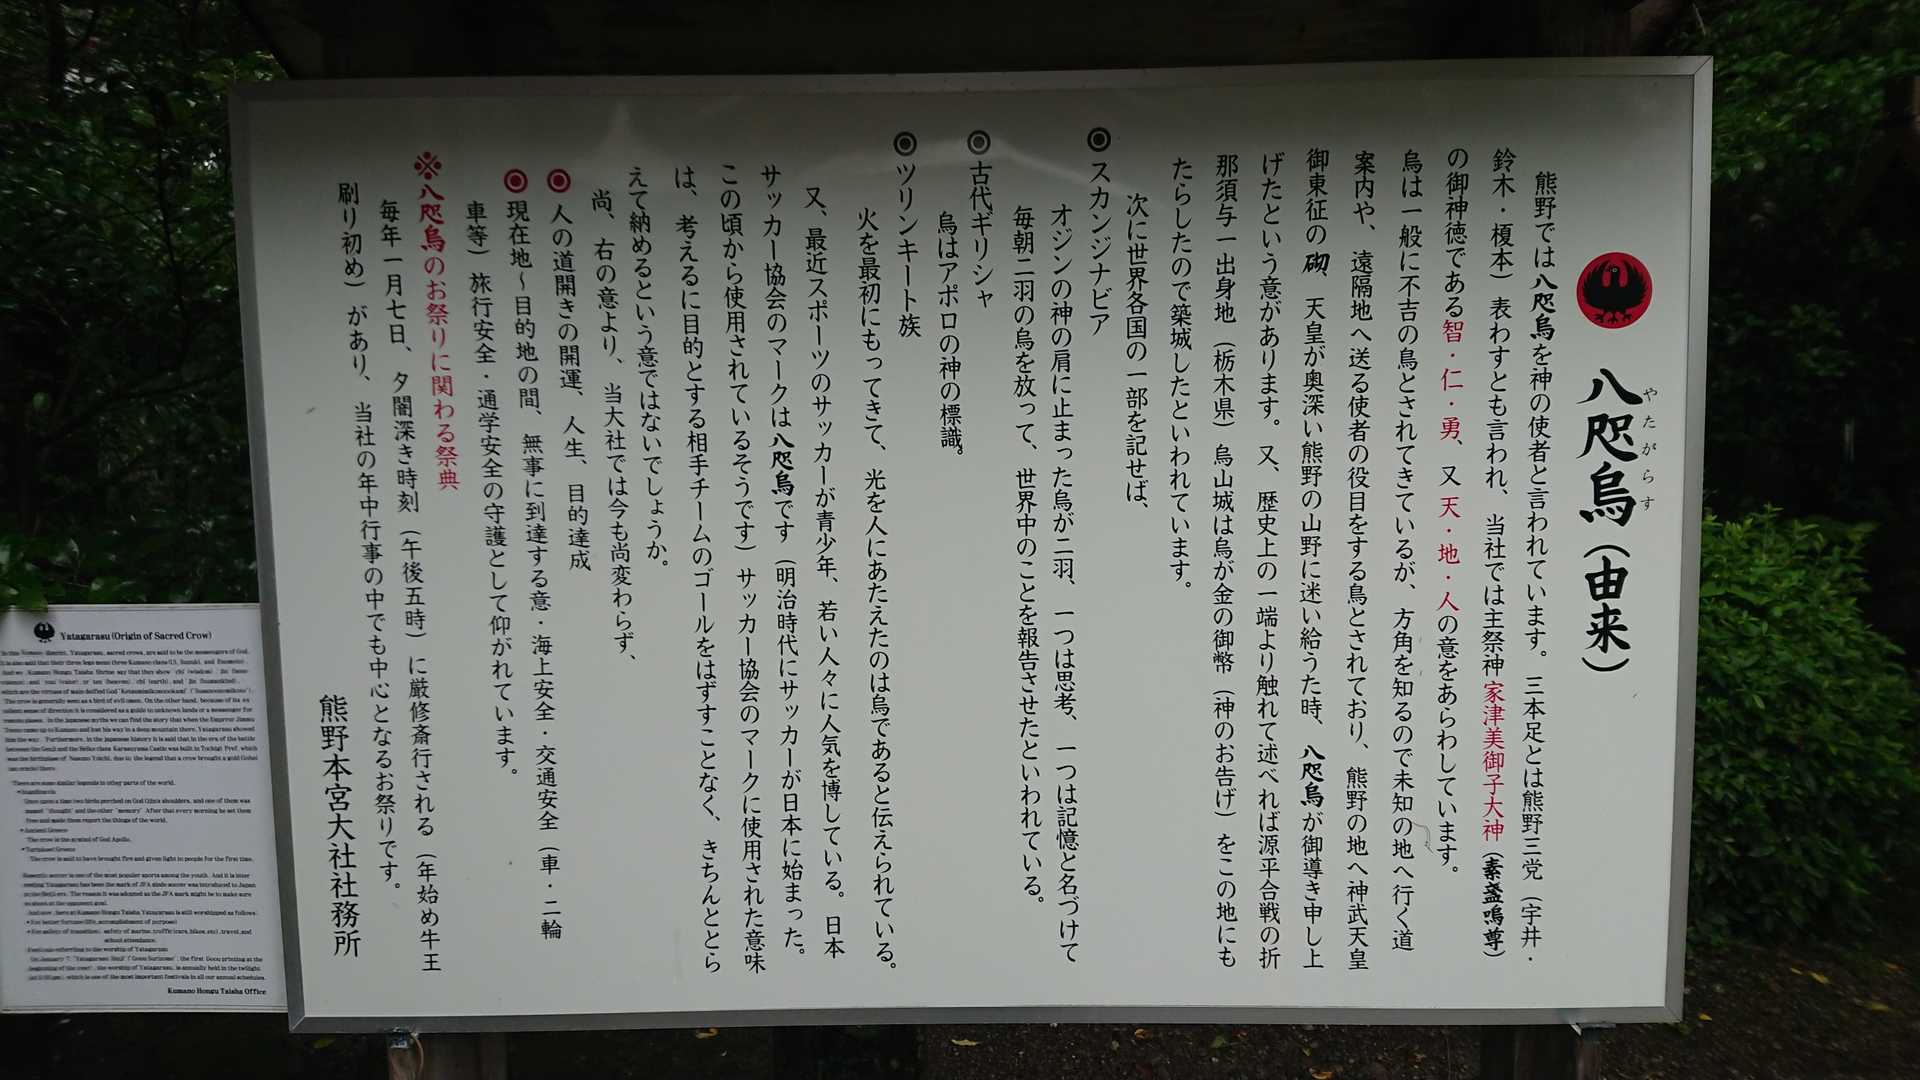 八咫烏（由来）
やたがらす
熊野では八咫烏を神の使者と言われています。三本足とは熊野三党（宇井・
鈴木・榎本）表わすとも言われ、当社では主祭神家津美御子大神（素盞嗚尊）
の御神徳である智・仁・勇、又天・地・人の意をあらわしています。
烏は一般に不吉の鳥とされてきているが、方角を知るので未知の地へ行く道
案内や、遠隔地へ送る使者の役目をする鳥とされており、熊野の地へ神武天皇
御東征の砌、天皇が奥深い熊野の山野に迷い給うた時、八咫烏が御導き申し上
げたという意があります。又、歴史上の一端より触れて述べれば源平合戦の折
那須与一出身地（栃木県）烏山城は烏が金の御幣（神のお告げ）をこの地にも
たらしたので築城したといわれています。
次に世界各国の一部を記せば、
◉スカンジナビア
オジンの神の肩に止まった烏が二羽、一つは思考、一つは記憶と名づけて
毎朝二羽の烏を放って、世界中のことを報告させたといわれている。
◉古代ギリシャ
烏はアポロの神の標識。
◉ツリンキート族
火を最初にもってきて、光を人にあたえたのは烏であると伝えられている。
又、最近スポーツのサッカーが青少年、若い人々に人気を博している。日本
サッカー協会のマークは八咫烏です（明治時代にサッカーが日本に始まった。
この頃から使用されているそうです）サッカー協会のマークに使用された意味
は、考えるに目的とする相手チームのゴールをはずすことなく、きちんととら
えて納めるという意ではないでしょうか。
尚、右の意より、当大社では今も尚変わらず、
◉人の道開きの開運、人生、目的達成
◉現在地～目的地の間、無事に到達する意・海上安全・交通安全（車・二輪
車等）旅行安全・通学安全の守護として仰がれています。
※八咫烏のお祭りに関わる祭典
毎年一月七日、夕闇深き時刻（午後五時）に厳修斎行される（年始め牛王
刷り初め）があり、当社の年中行事の中でも中心となるお祭りです。
熊野本宮大社社務所
Yatagarasu (Origin of Sacred Crow)
In this Kumano district, Yatagarasu, sacred crows, are said to be the messengers of God.
There are some similar legends in other parts of the world.
Once upon a time two birds perched on God Odin's shoulders, and one of them was
named "thought" and the other "memory". After that every morning he set them
free and made them report the things of the world.
Ancient Greece
The crow is the symbol of God Apollo.
The crow is said to have brought fire and given light to people for the first time.
Kumano Hongu Taisha Office